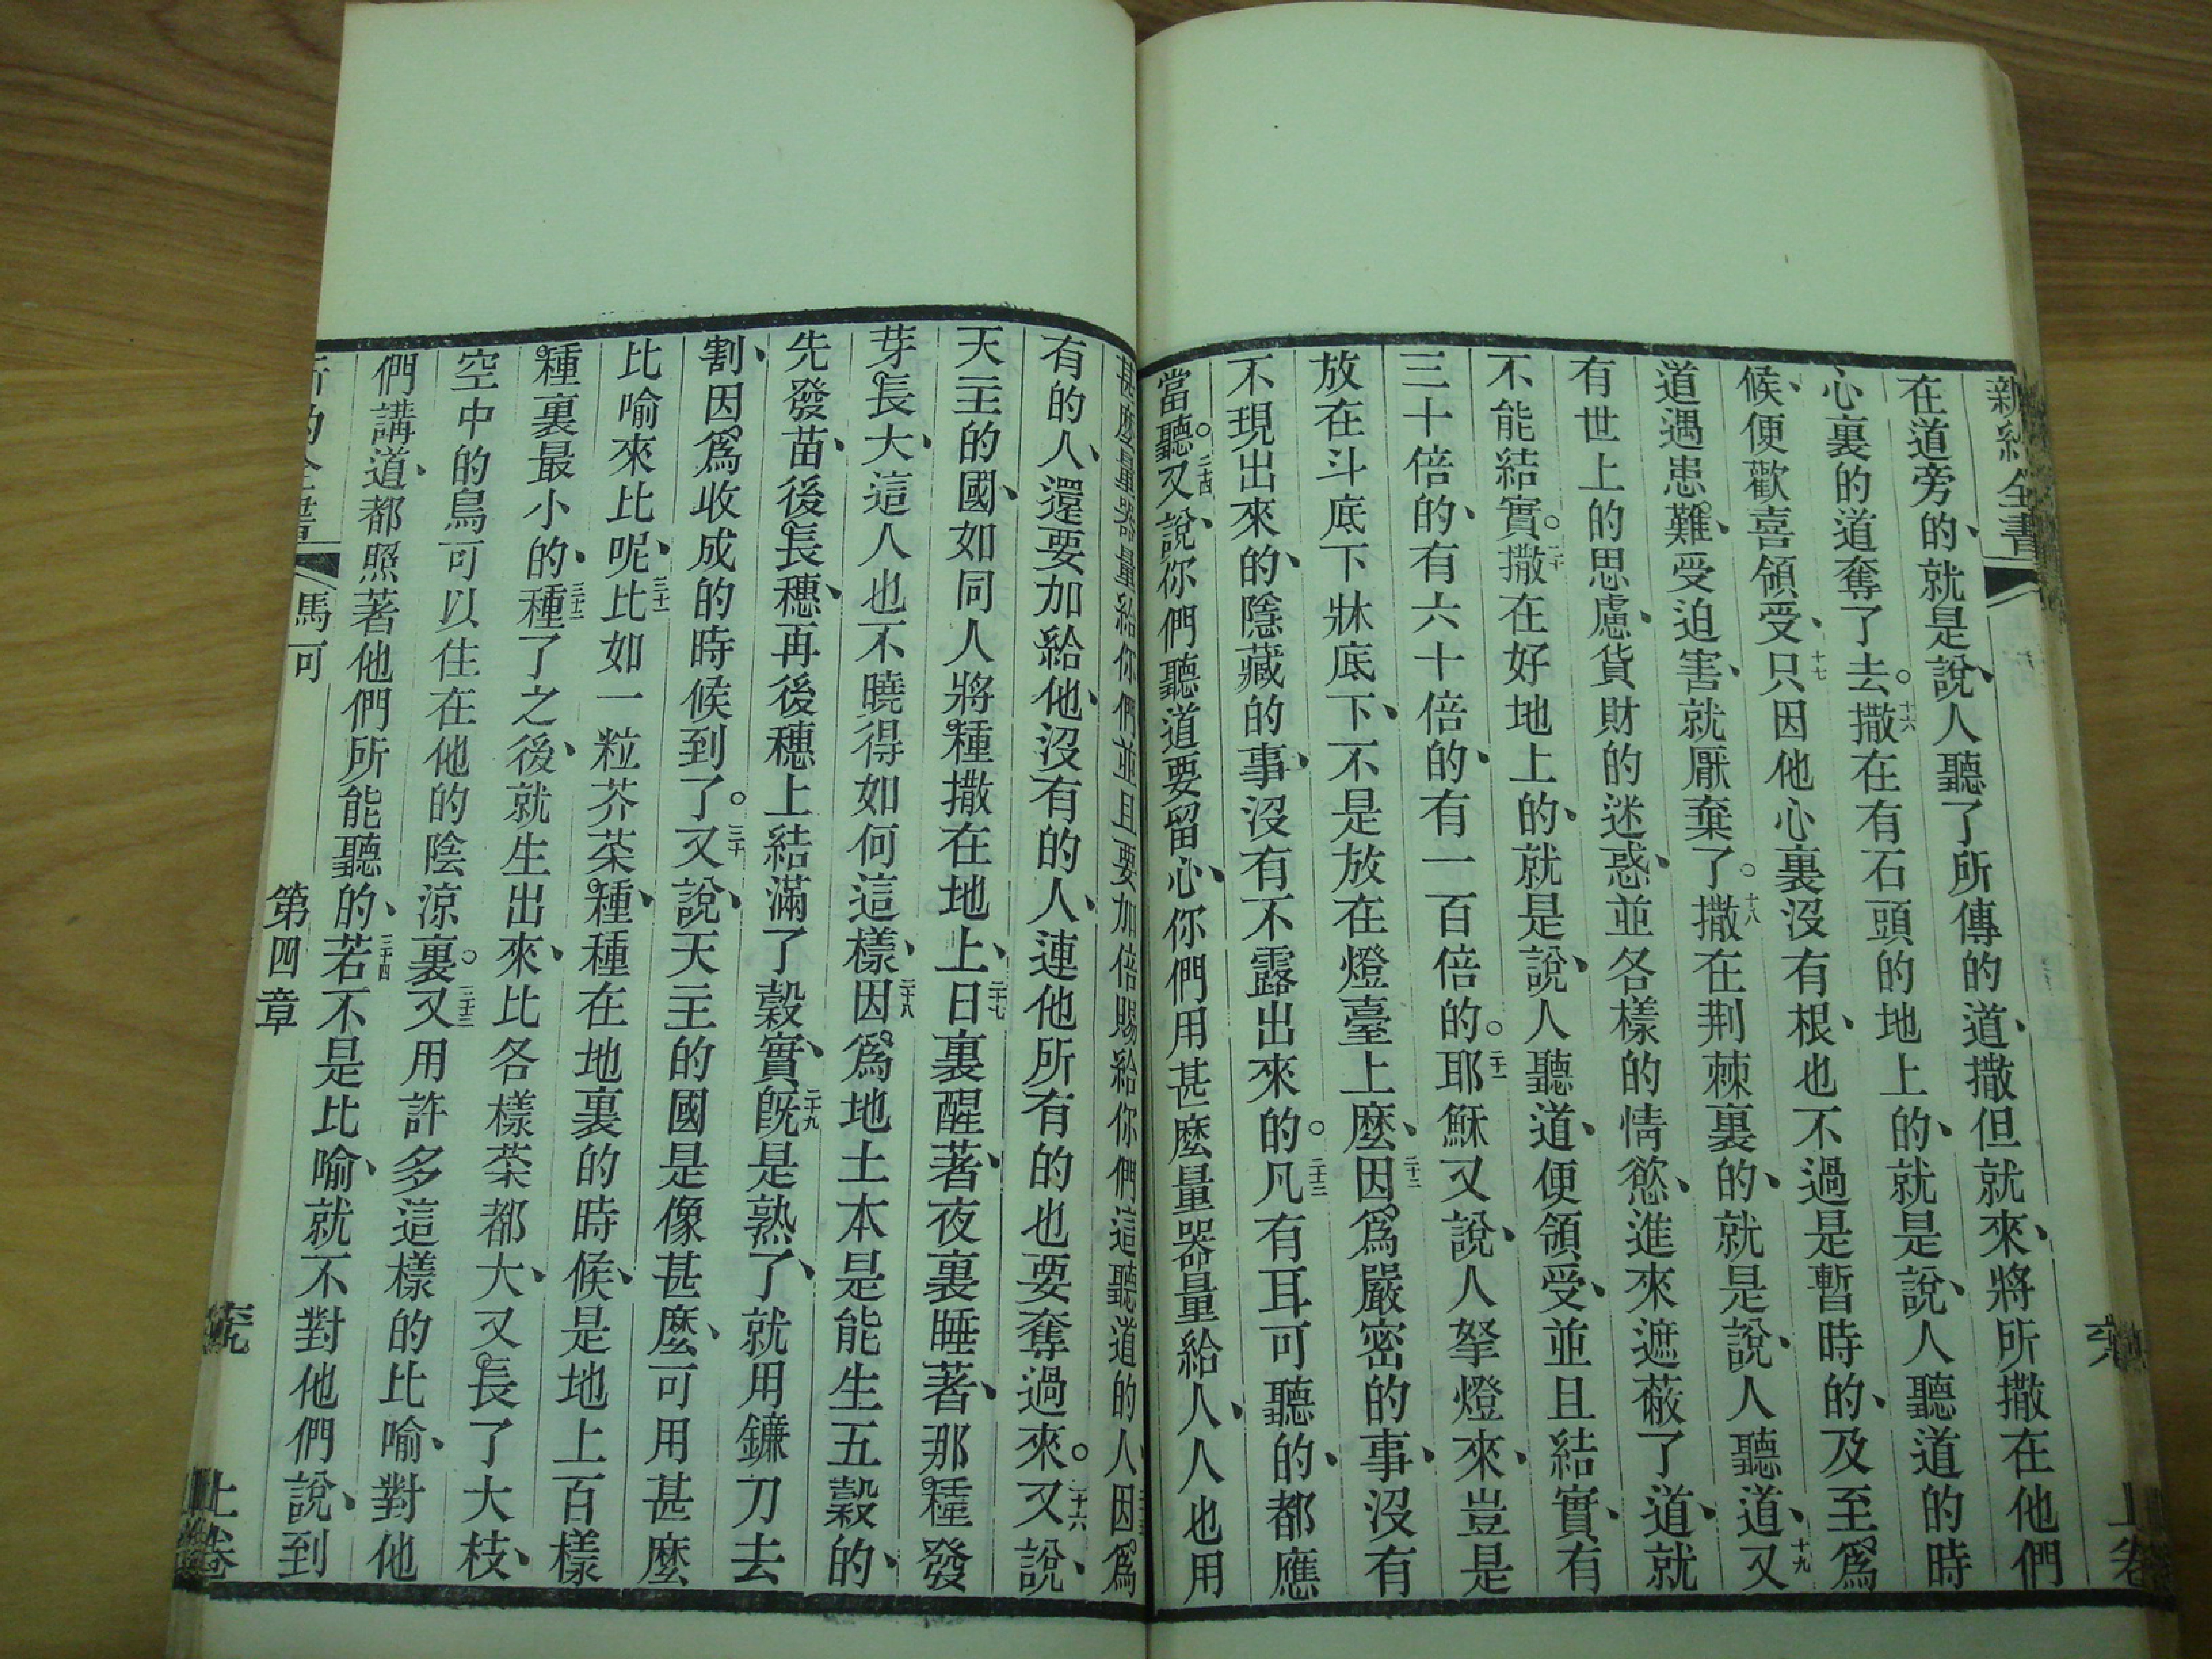 新約全書
在道旁的、就是說、人聽了所傳的道、撒但就來、將所撒在他們
心裏的道奪了去。十六撒在有石頭的地上的、就是說、人聽道的時
候、便歡喜領受、十七只因他心裏沒有根、也不過是暫時的、及至爲
道遇患難、受迫害、就厭棄了。十八撒在荆棘裏的、就是說、人聽道、十九又
有世上的思慮、貨財的迷惑、並各樣的情慾、進來遮蔽了道、就
不能結實。二十撒在好地上的、就是說、人聽道、便領受、並且結實、有
三十倍的、有六十倍的、有一百倍的。二十一耶穌又說、人拏燈來、豈是
放在斗底下牀底下、不是放在燈臺上麼、二十二因爲嚴密的事、沒有
不現出來的、隱藏的事、沒有不露出來的。二十三凡有耳可聽的、都應
當聽。二十四又說、你們聽道要留心、你們用甚麼量器量給人、人也用
上卷
甚麼量器量給你們並且要加倍賜給你們這聽道的人、二十五因爲
有的人、還要加給他、沒有的人、連他所有的也要奪過來。二十六又說、
天主的國、如同人將種撒在地上、二十七日裏醒著、夜裏睡著、那種發
芽長大、這人也不曉得如何這樣、二十八因爲地土本是能生五穀的、
先發苗、後長穗、再後穗上結滿了穀實、二十九旣是熟了、就用鐮刀去
割、因爲收成的時候到了。三十又說、天主的國是像甚麼、可用甚麼
比喻來比呢、三十一比如一粒芥菜種、種在地裏的時候、是地上百樣
種裏最小的、三十二種了之後、就生出來、比各樣菜都大、又長了大枝、
空中的鳥可以住在他的陰涼裏。三十三又用許多這樣的比喻、對他
們講道、都照著他們所能聽的、三十四若不是比喻、就不對他們說、到
馬可 第四章 上卷